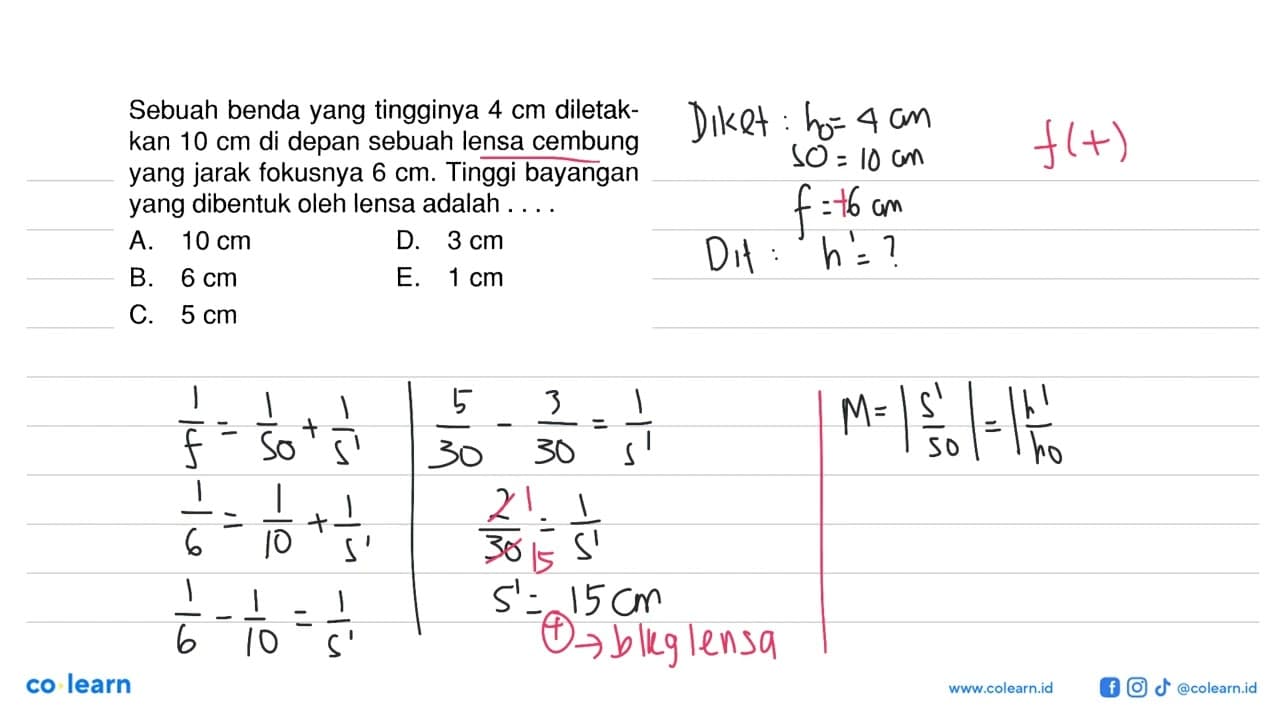 Sebuah benda yang tingginya 4 cm diletak-
kan 10 cm di depan sebuah lensa cembung
yang jarak fokusnya 6 cm. Tinggi bayangan
yang dibentuk oleh lensa adalah . . . .
A. 10 cm D. 3 cm
B. 6 cm E. 1 cm
C. 5 cm
Diket : ho = 4 cm
so = 10 cm
f = +6 cm
Dit : h' = ?
f(+)
1/f = 1/so + 1/s'
1/6 = 1/10 + 1/s'
1/6 - 1/10 = 1/s'
5/30 - 3/30 = 1/s'
2/30 1/15 = 1/s'
s' = 15 cm
+ → blkg lensa
M = |s'/so| = |h'/ho
co learn
www.colearn.id
@colearn.id